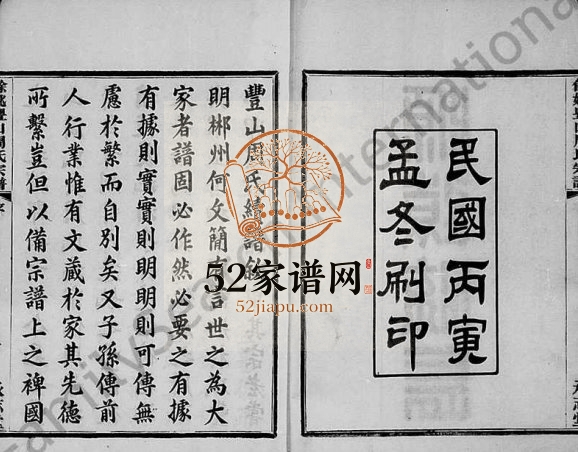 民國丙寅
孟冬刷印
豐山周氏續譜
明郴州何文簡有言世之為大
家者譜固必作然必要之有據
有據則實實則明明則可傳無
慮於繁而自別矣又子孫傳前
人行業惟有文蔵於家其先德
所繫豈但以備宗譜上之裨國
餘姚豐山周氏宗譜
52家谱网
52jiapu.com
FamilySearch International